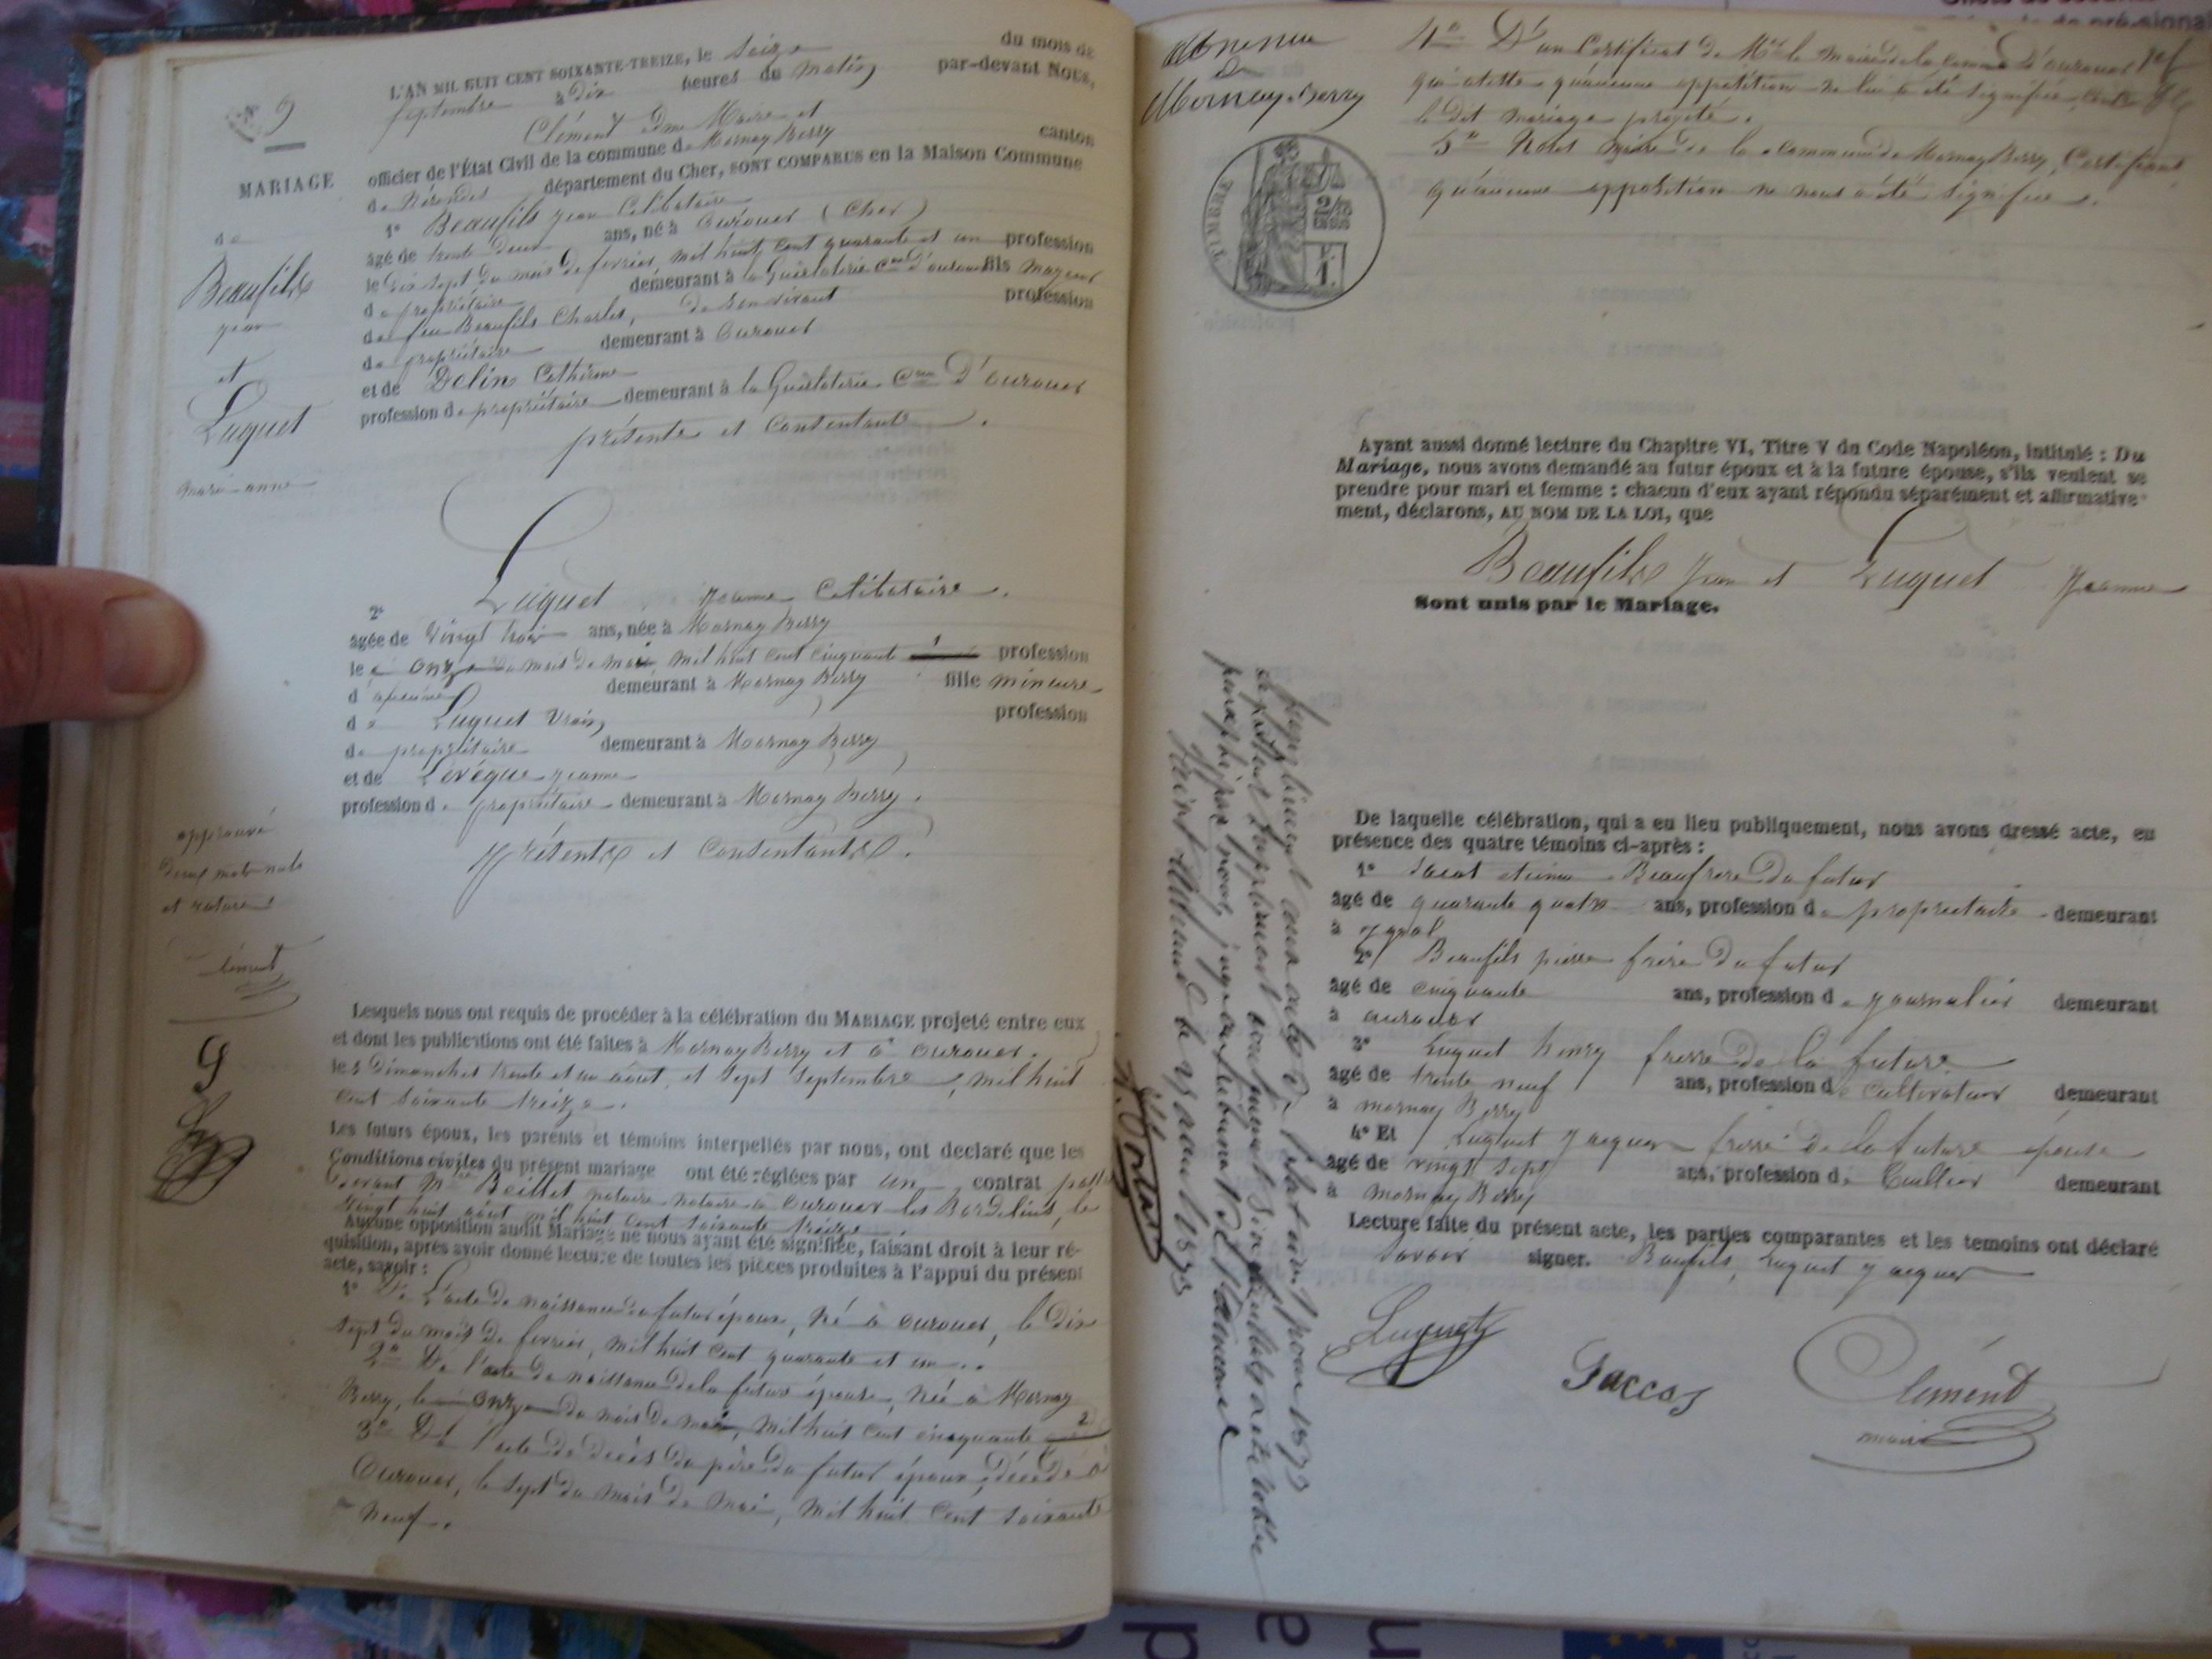 N° 9
MARIAGE
de
Beaufils
jean
et
Luguet
marie-anne
L'AN MIL HUIT CENT SOIXANTE-TREIZE, le seize du mois de
septembre à dix heures du matin par-devant Nous,
Clément Maire et
officier de l'État Civil de la commune de Mornay Berry canton
de Nérondes département du Cher, SONT COMPARUS en la Maison Commune
1° Beaufils jean Celibataire
âgé de trente deux ans, né à Ourouer (Cher)
le dix sept du mois de fevrier, mil huit cent quarante et un profession
de propriétaire demeurant à la cne D'ourouer fils majeur
de feu Beaufils Charles, de son vivant profession
de propriétaire demeurant à Ourouer
et de Delin
profession de propriétaire demeurant à la Cne D'ourouer
présente et consentante.
2° Luguet jeanne Celibataire.
agée de vingt trois ans, née à Mornay Berry
le onze du mois de mai mil huit cent cinquante profession
d demeurant à Mornay Berry fille mineure
de Luguet profession
de propriétaire demeurant à Mornay Berry
et de Levêque jeanne
profession de propriétaire demeurant à Mornay Berry.
Présents et Consentants.
approuvé
deux mots nuls
et raturés
Clément
Lesquels nous ont requis de procéder à la célébration du MARIAGE projeté entre eux
et dont les publications ont été faites à Mornay Berry et à Ourouer.
les Dimanches trente et un août, et sept septembre, mil huit
cent soixante treize.
Les futurs époux, les parents et témoins interpellés par nous, ont declaré que les
Conditions civiles du présent mariage ont été réglées par un contrat passé
devant Beillet notaire à Ourouer les Bordelins, le
vingt huit août mil huit cent soixante treize.
Aucune opposition audit Mariage ne nous ayant été signifiée, faisant droit à leur ré-
quisition, après avoir donné lecture de toutes les pièces produites à l'appui du présent
acte, savoir :
1° De L'acte de naissance du futur époux, né à Ourouer, le dix
sept du mois de fevrier, mil huit cent quarante et un.
2° De l'acte de naissance de la future épouse, née à Mornay
Berry, le onze du mois de mai, mil huit cent cinquante
3° De l'acte de décès du père du futur époux, décédé à
Ourouer, le sept du mois de mai, mil huit cent soixante
neuf.
Mornay-Berry
TIMBRE
4° D'un Certificat de Mr le maire de la comne D'ourouer
qui atteste qu'aucune opposition ne lui a été signifiée
le dit mariage projeté.
5° Nous Maire de la Commune de Mornay Berry, Certifions
qu'aucune opposition ne nous a été signifiée.
Ayant aussi donné lecture du Chapitre VI, Titre V du Code Napoléon, intitulé : Du
Mariage, nous avons demandé au futur époux et à la future épouse, s'ils veulent se
prendre pour mari et femme : chacun d'eux ayant répondu séparément et affirmative-
ment, déclarons, AU NOM DE LA LOI, que
Beaufils Jean et Luguet Jeanne
Sont unis par le Mariage.
De laquelle célébration, qui a eu lieu publiquement, nous avons dressé acte, en
présence des quatre témoins ci-après :
1° Beaufrere du futur
âgé de quarante quatre ans, profession de propriétaire demeurant
à
2° Beaufils pierre frère du futur
âgé de cinquante ans, profession de journalier demeurant
à ourouer
3° Luguet henry frere de la future
âgé de trente neuf ans, profession de cultivateur demeurant
à mornay Berry
4° Et Luguet jacques frere de la future épouse
âgé de vingt sept ans, profession de demeurant
à mornay Berry
Lecture faite du présent acte, les parties comparantes et les temoins ont déclaré
savoir signer. Luguet jacques
Luguet
Saccas
Clément
maire